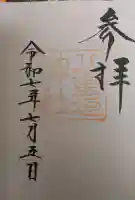 参拝
令和七年七月五日